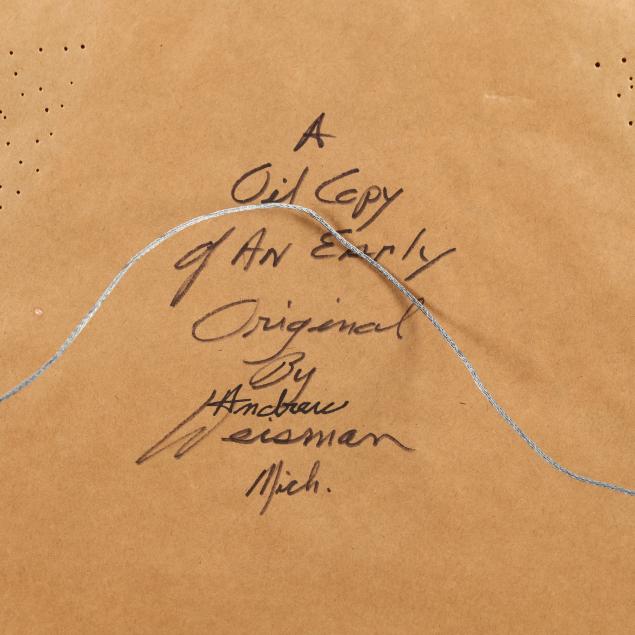 A
Oil Copy
of An Early
Original
By
Andrew
Weisman
Mich.